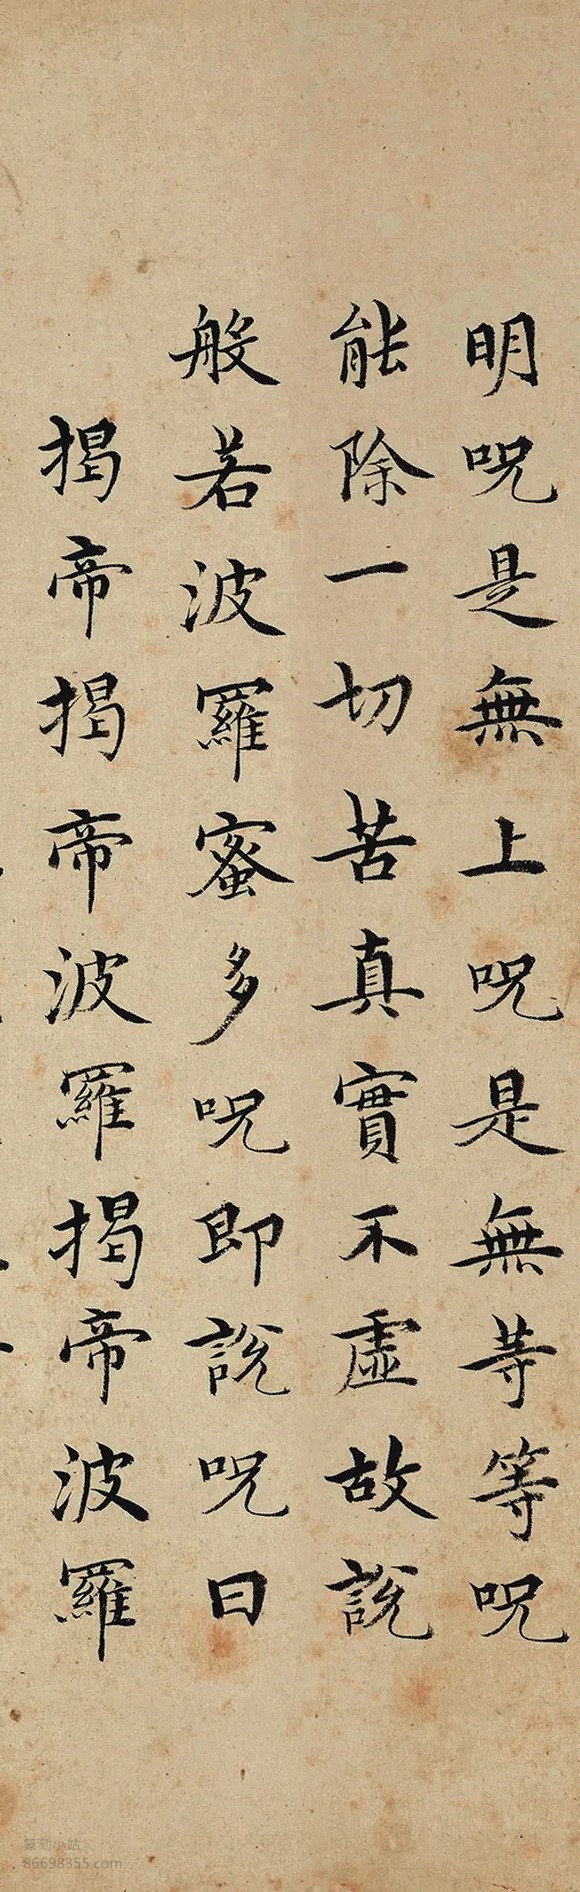 明咒是無上咒是無等等咒
能除一切苦真實不虛故說
般若波羅蜜多咒即說咒曰
揭帝揭帝波羅揭帝波羅
篆刻小站
86698355.com